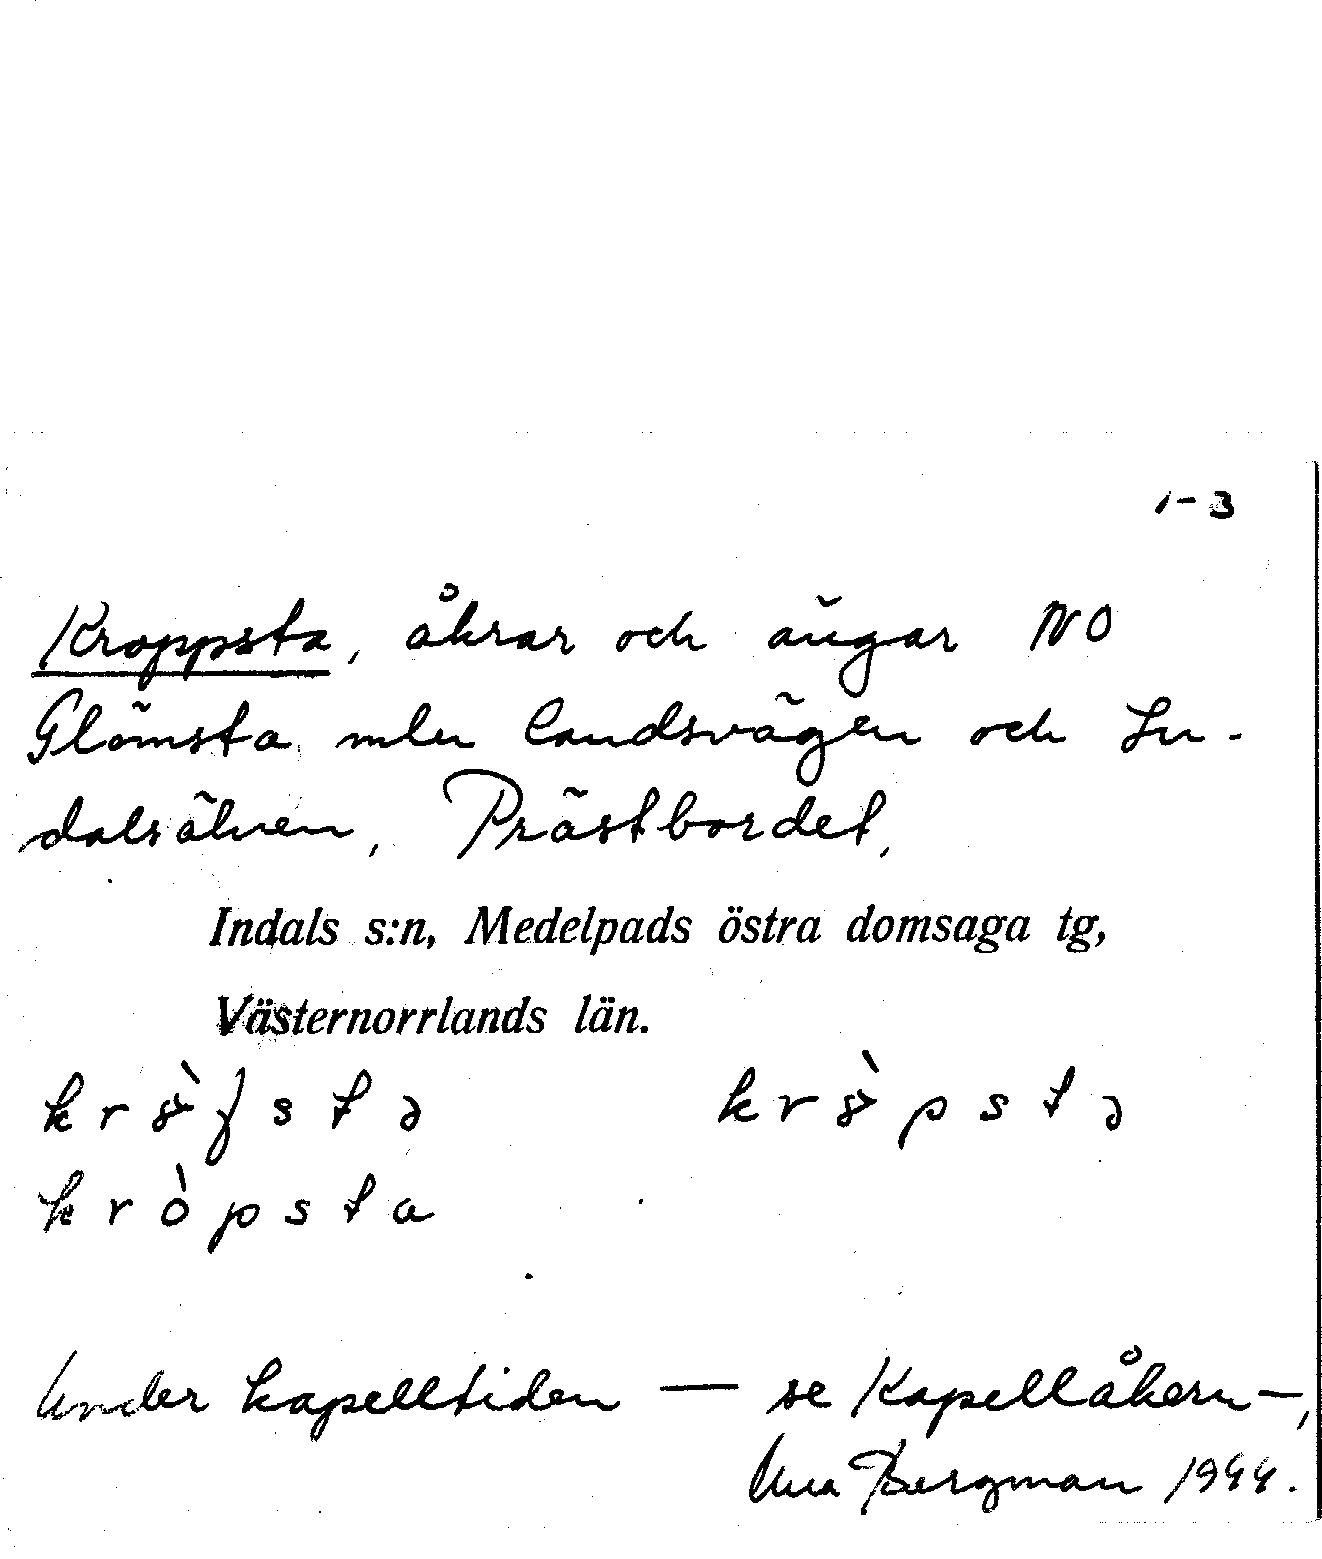 1-3
Kroppsta, åkrar och ängar NO
Glömsta mln landsvägen och In-
dalsälven, Prästbordet,
Indals s:n, Medelpads östra domsaga tg,
Västernorrlands län.
kròpsta
Under kapelltiden — se Kapellåkern —,
Bergman 1944.